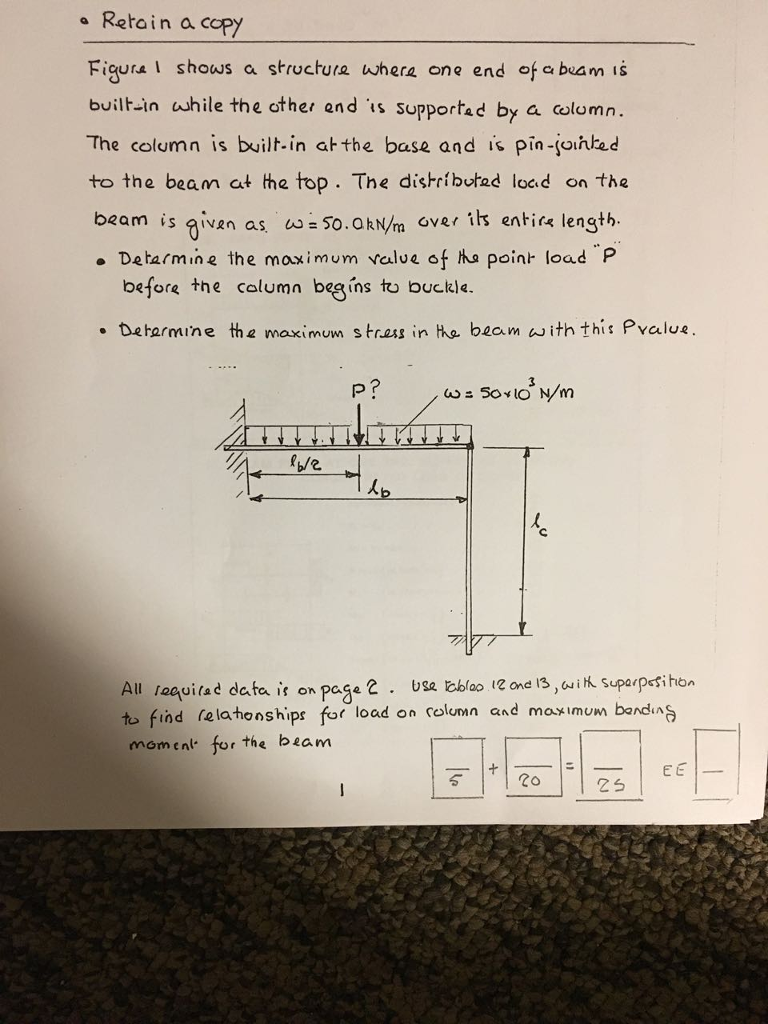 • Retain a copy
Figure 1 shows a structure where one end of a beam is
built-in while the other end is supported by a column.
The column is built-in at the base and is pin-jointed
to the beam at the top. The distributed load on the
beam is given as ω = 50.0kN/m over its entire length.
• Determine the maximum value of the point load "P"
before the column begins to buckle.
• Determine the maximum stress in the beam with this P value.
P?
ω = 50×10³ N/m
lb/2
lb
lc
All required data is on page 2. Use tables 12 and 13, with superposition
to find relationships for load on column and maximum bending
moment for the beam
5 + 20 = 25 EE
1